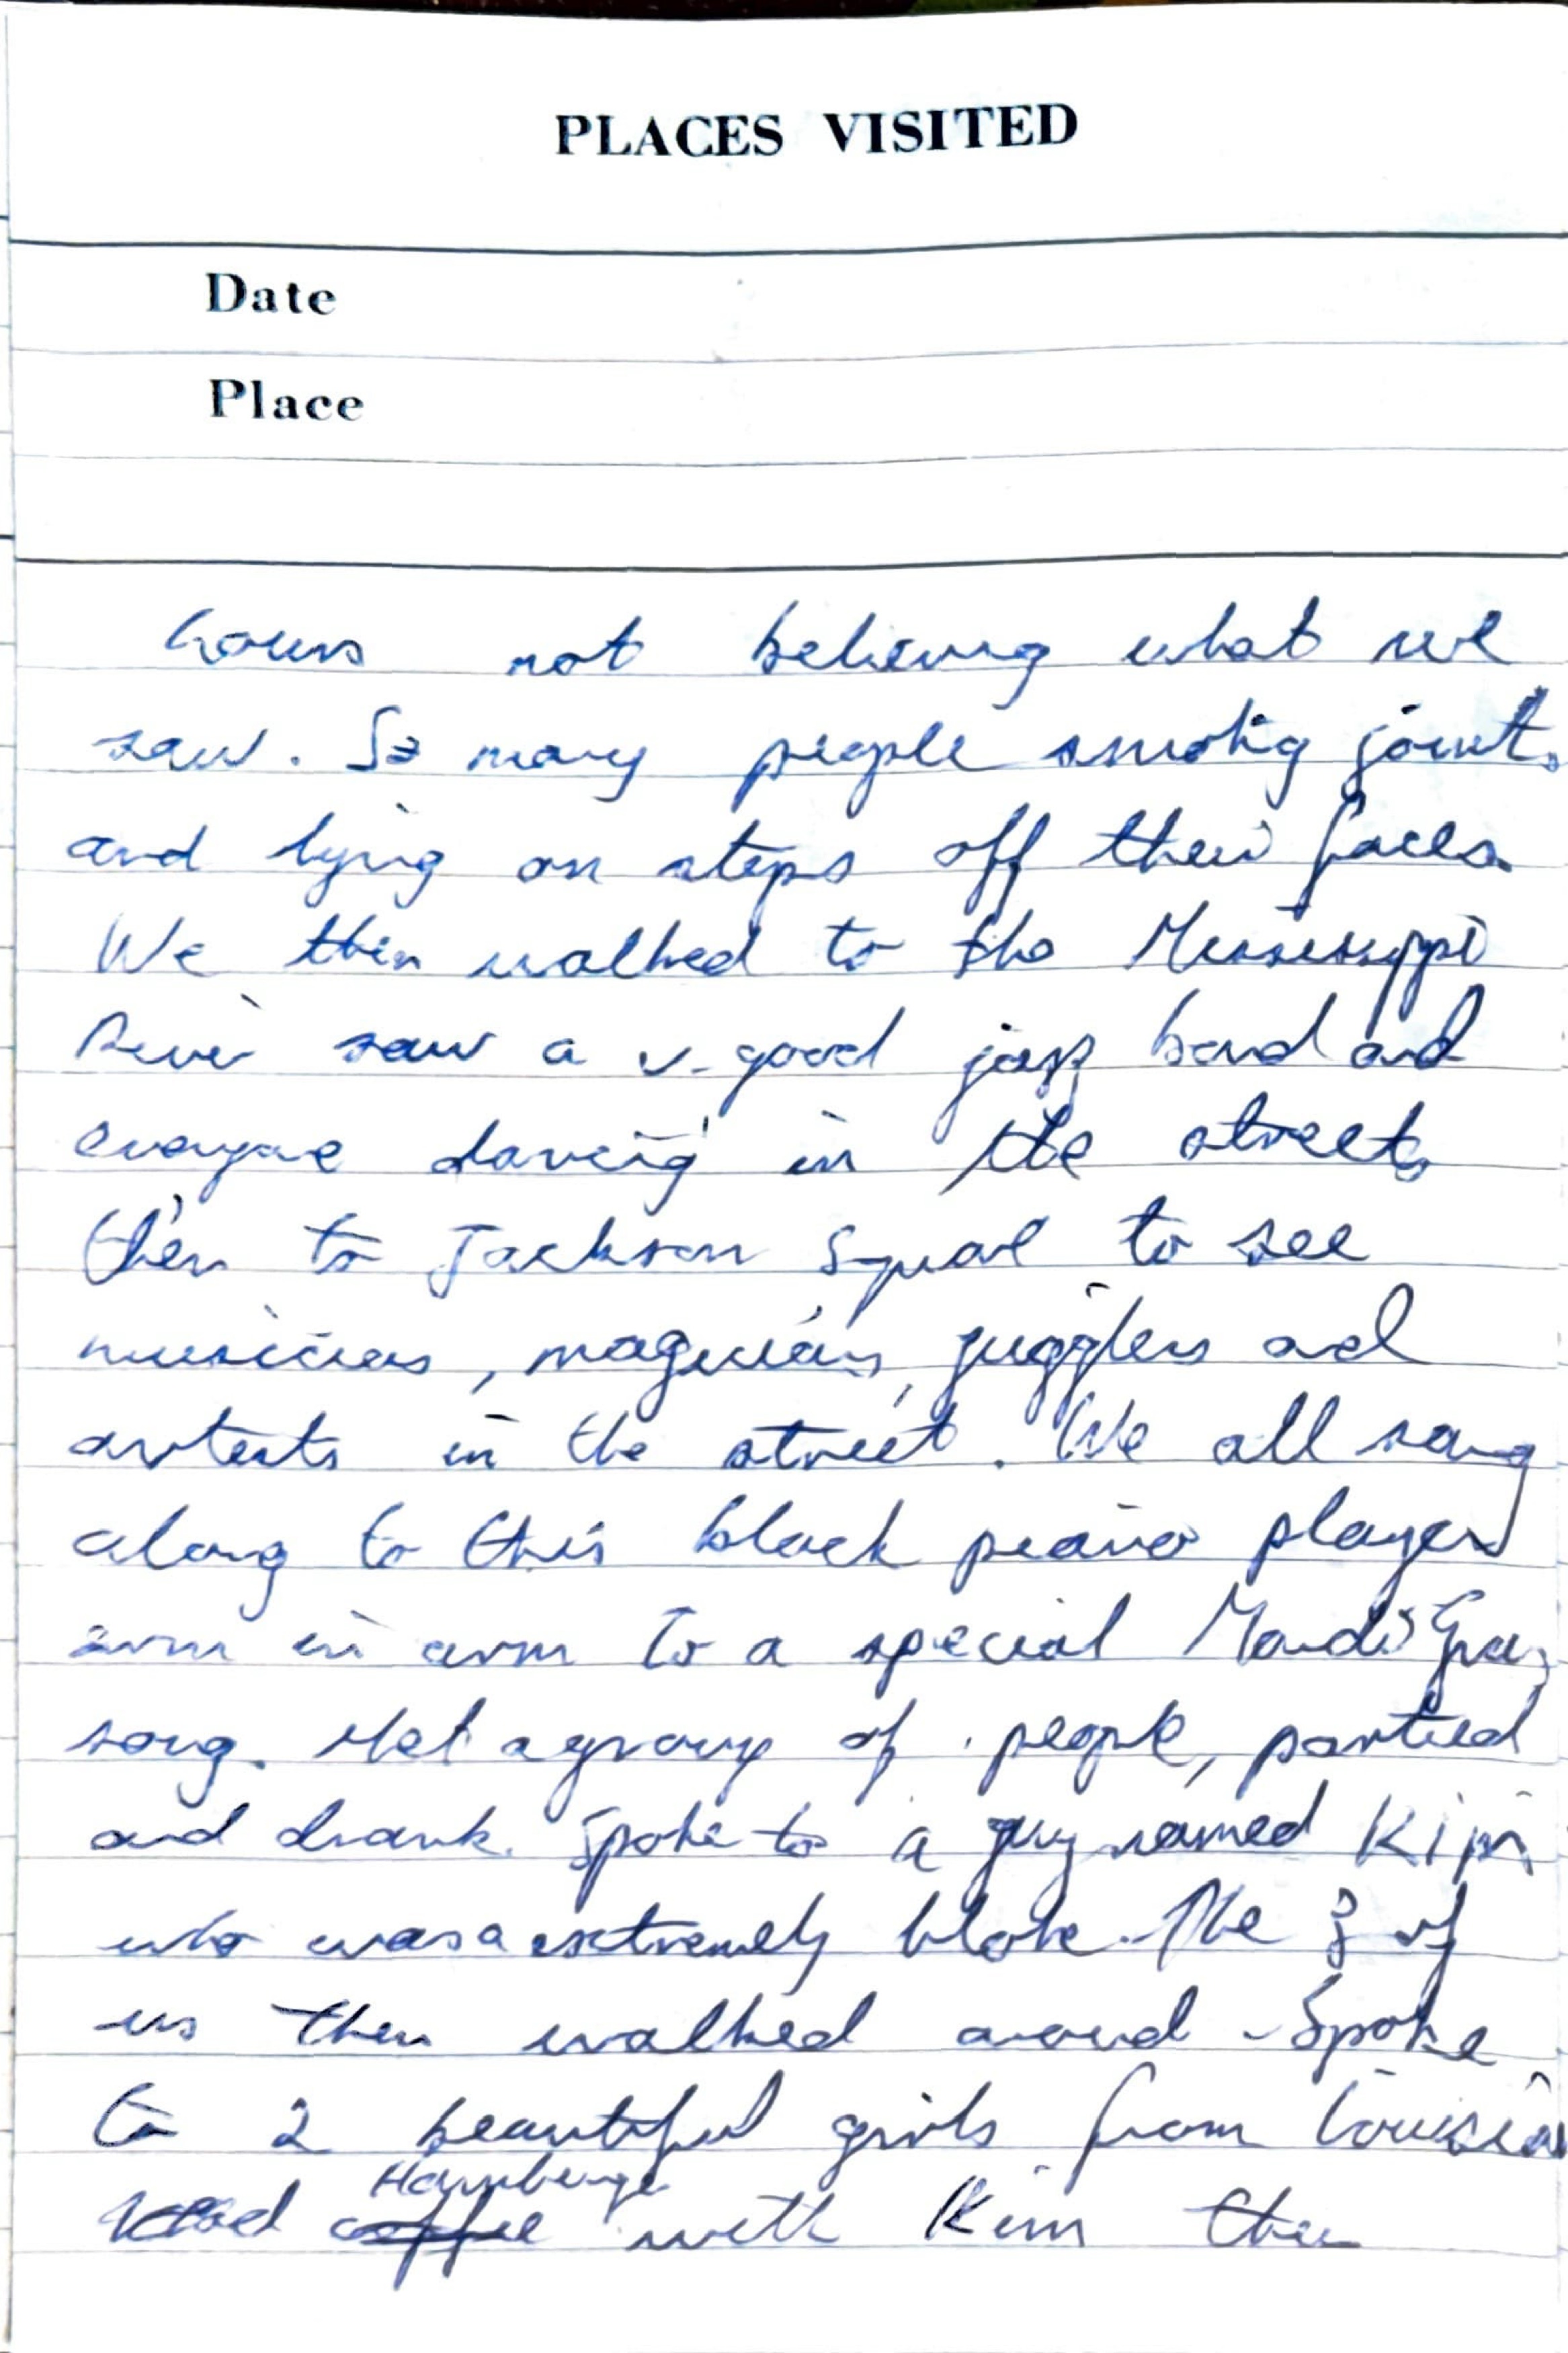 PLACES VISITED
Date
Place
hours not believing what we
saw. So many people smoking joints
and lying on steps off their faces.
We then walked to the Mississippi
River saw a v. good jazz band and
everyone dancing in the streets
then to Jackson Square to see
musicians, magicians, jugglers and
artists in the street. We all sang
along to this black piano player
arm in arm to a special Mardi Gras
song. Met a group of people, partied
and drank. Spoke to a guy named Kim
who was a extremely bloke. The 3 of
us then walked around - Spoke
to 2 beautiful girls from Louisiana
Hamburger
Had coffee with Kim then